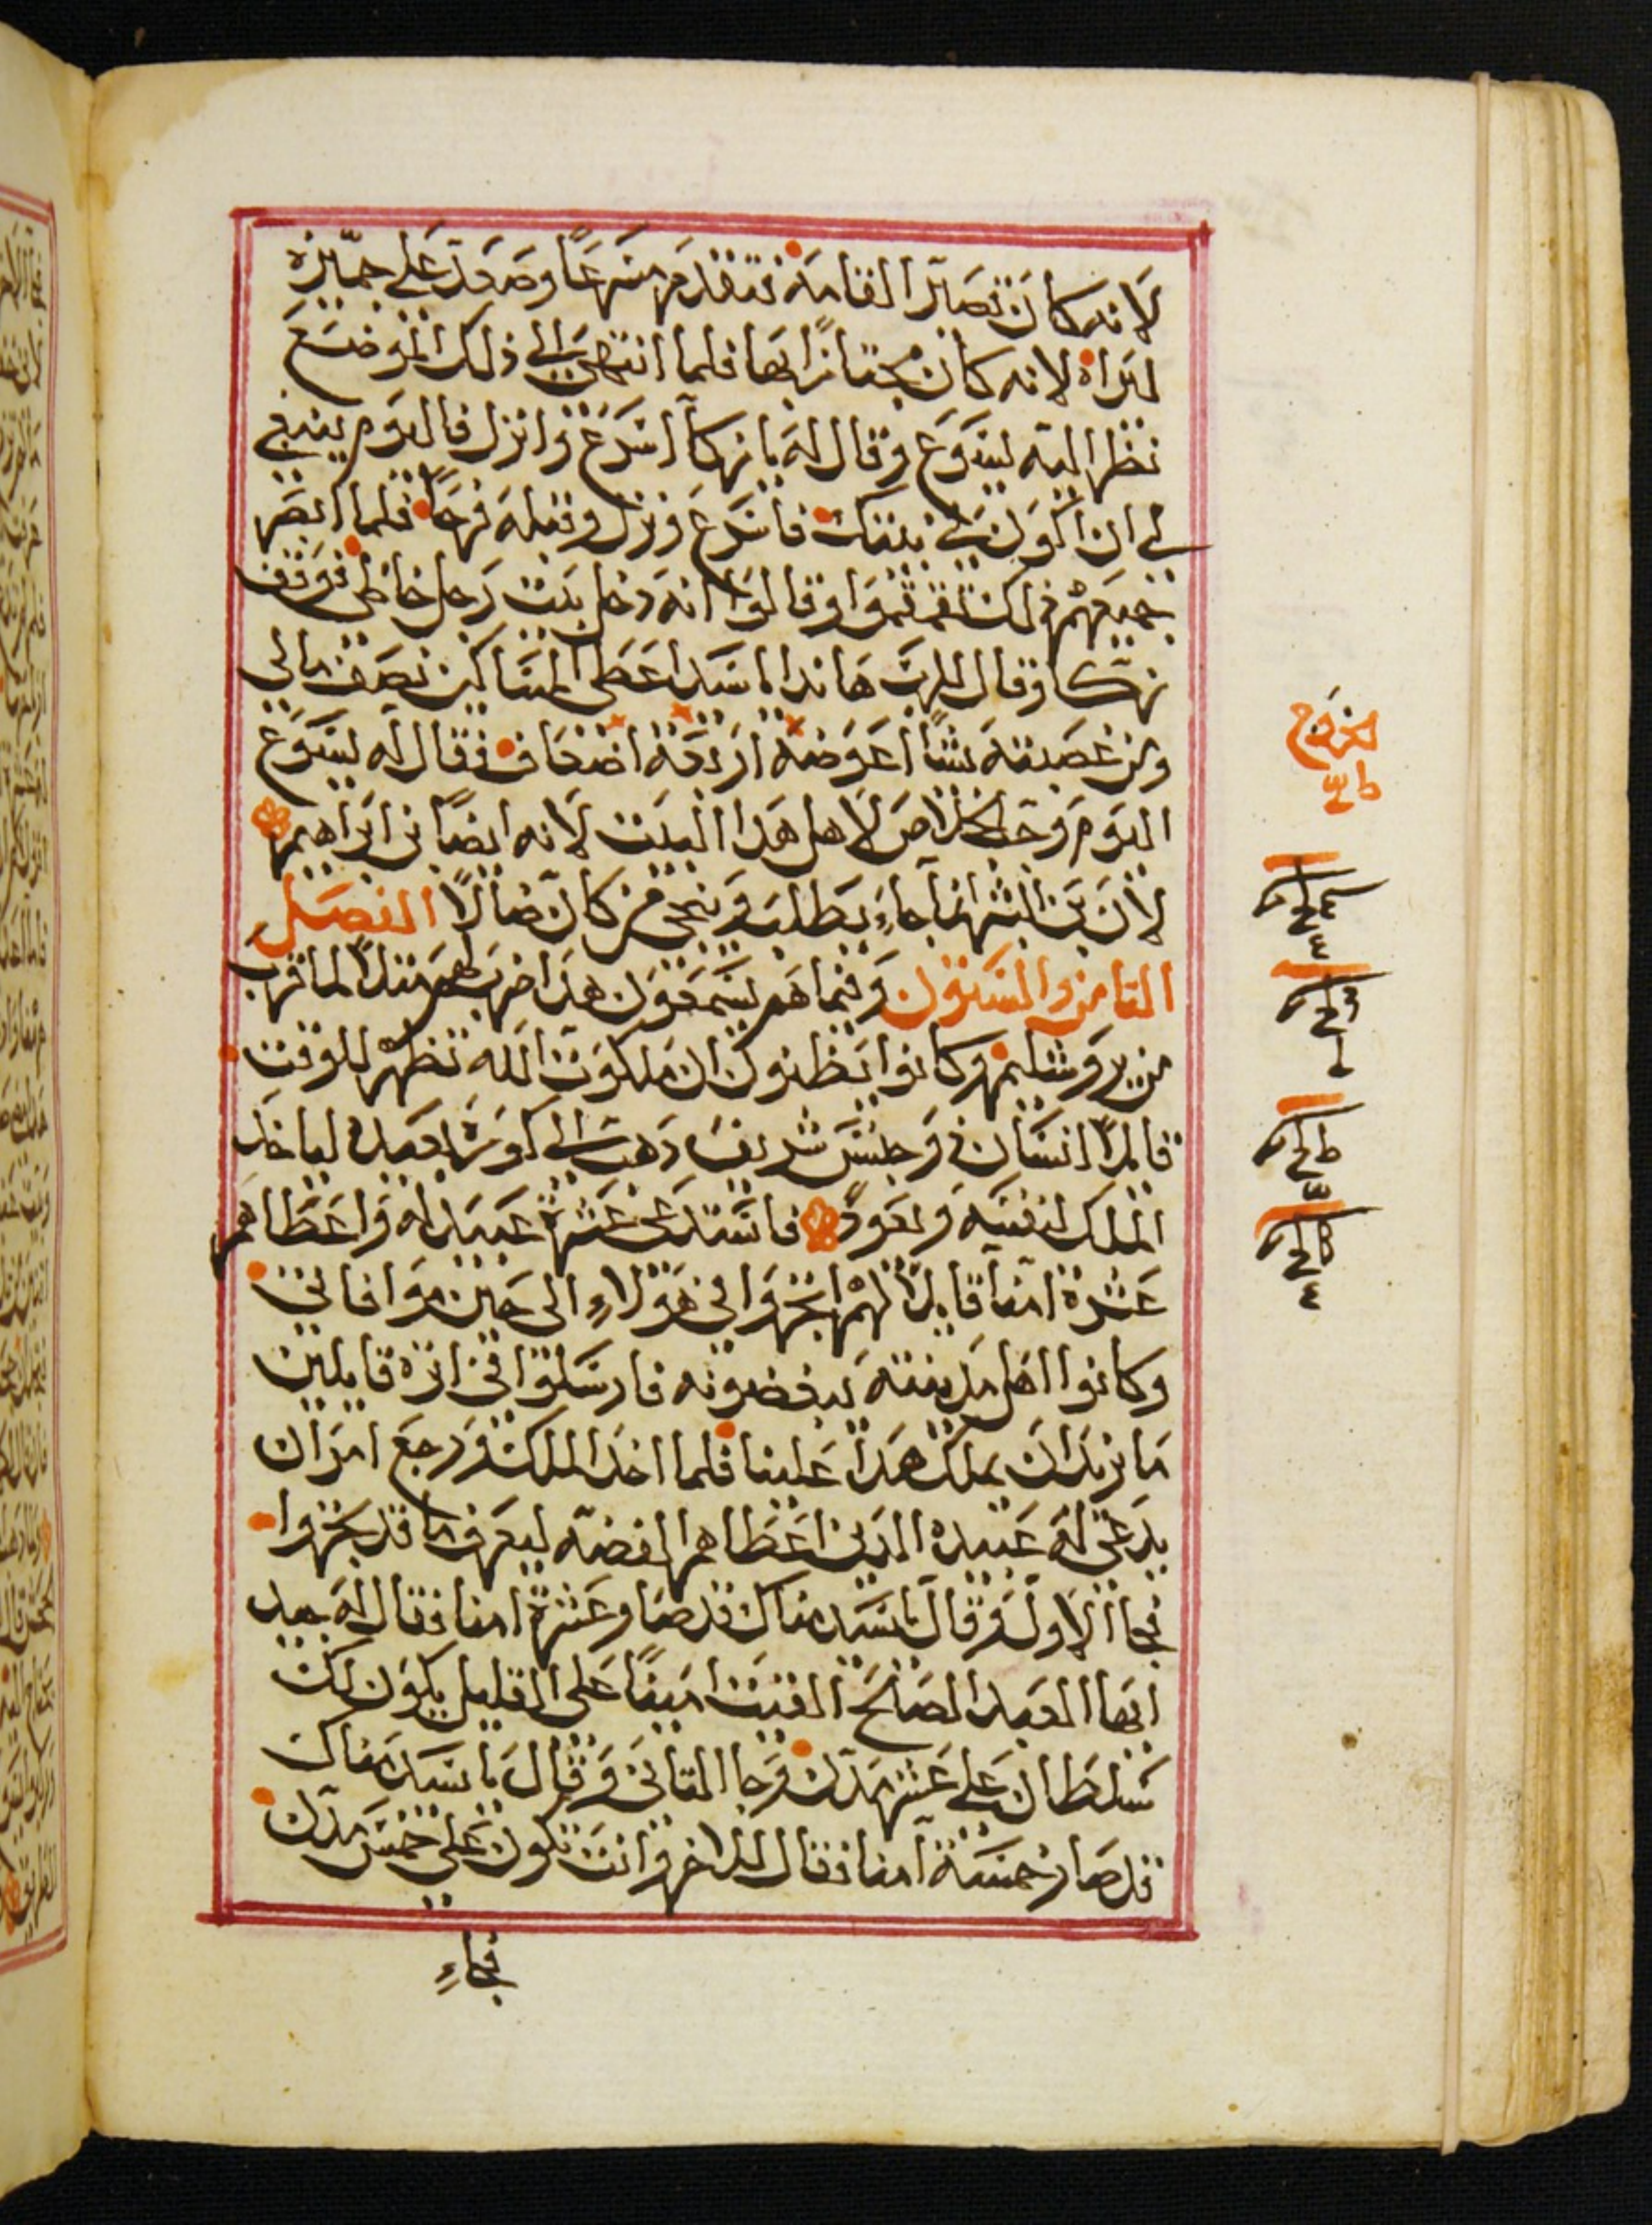 لانه كان قصير القامة فتقدم مسرعًا وصعد على جميزه
ليراه لانه كان مجتازًا بها فلما انتهى الي ذلك الموضع
نظر اليه يسوع وقال له يا زكا اسرع وانزل فاليوم ينبغي
لي ان اكون في بيتك فاسرع ونزل وقبله فرحًا فلما ابصر
جميعهم ذلك تقمقموا وقالوا انه دخل بيت رجل خاطي فوقف
زكا وقال للرب هاندا يا سيد اعطي المساكين نصف مالي
ومن غصبته شيًا اعوضه اربعة اضعاف فقال له يسوع
اليوم وجب الخلاص لاهل هدا البيت لانه ايضًا بن ابراهيم
لان بن البشر انما جاء يطلب وينجي من كان ضالًا الفصل
الثامن والستون وفيما هم يسمعون هدا ضرب لهم مثلًا لما قرب
من يروشليم وكانوا يظنون ان ملكوت الله تظهر للوقت
قايلًا انسان دو جنس شريف دهب الي كورة بعيده لياخد
الملك لنفسه ويعود فاستدعى عشرة عبيد له واعطاهم
عشرة امنا قايلًا لهم اتجروا في هولاء الى حين موافاتي
وكانوا اهل مدينته يبغضونه فارسلوا في اثره قايلين
ما نريد ان يملك هدا علينا فلما اخد الملك ورجع امر ان
يدعى له عبيده الدين اعطاهم الفضه ليعرف ما قد تجروا
فجا الاول وقال يا سيد مناك قد صار عشرة امنا فقال له جيد
ايها العبد الصالح الفيت امينًا على القليل يكون لك
سلطان على عشر مدن وجا الثاني وقال يا سيد مناك
قد صار خمسة امنا فقال للاخر وانت تكون على خمس مدن
فجاء